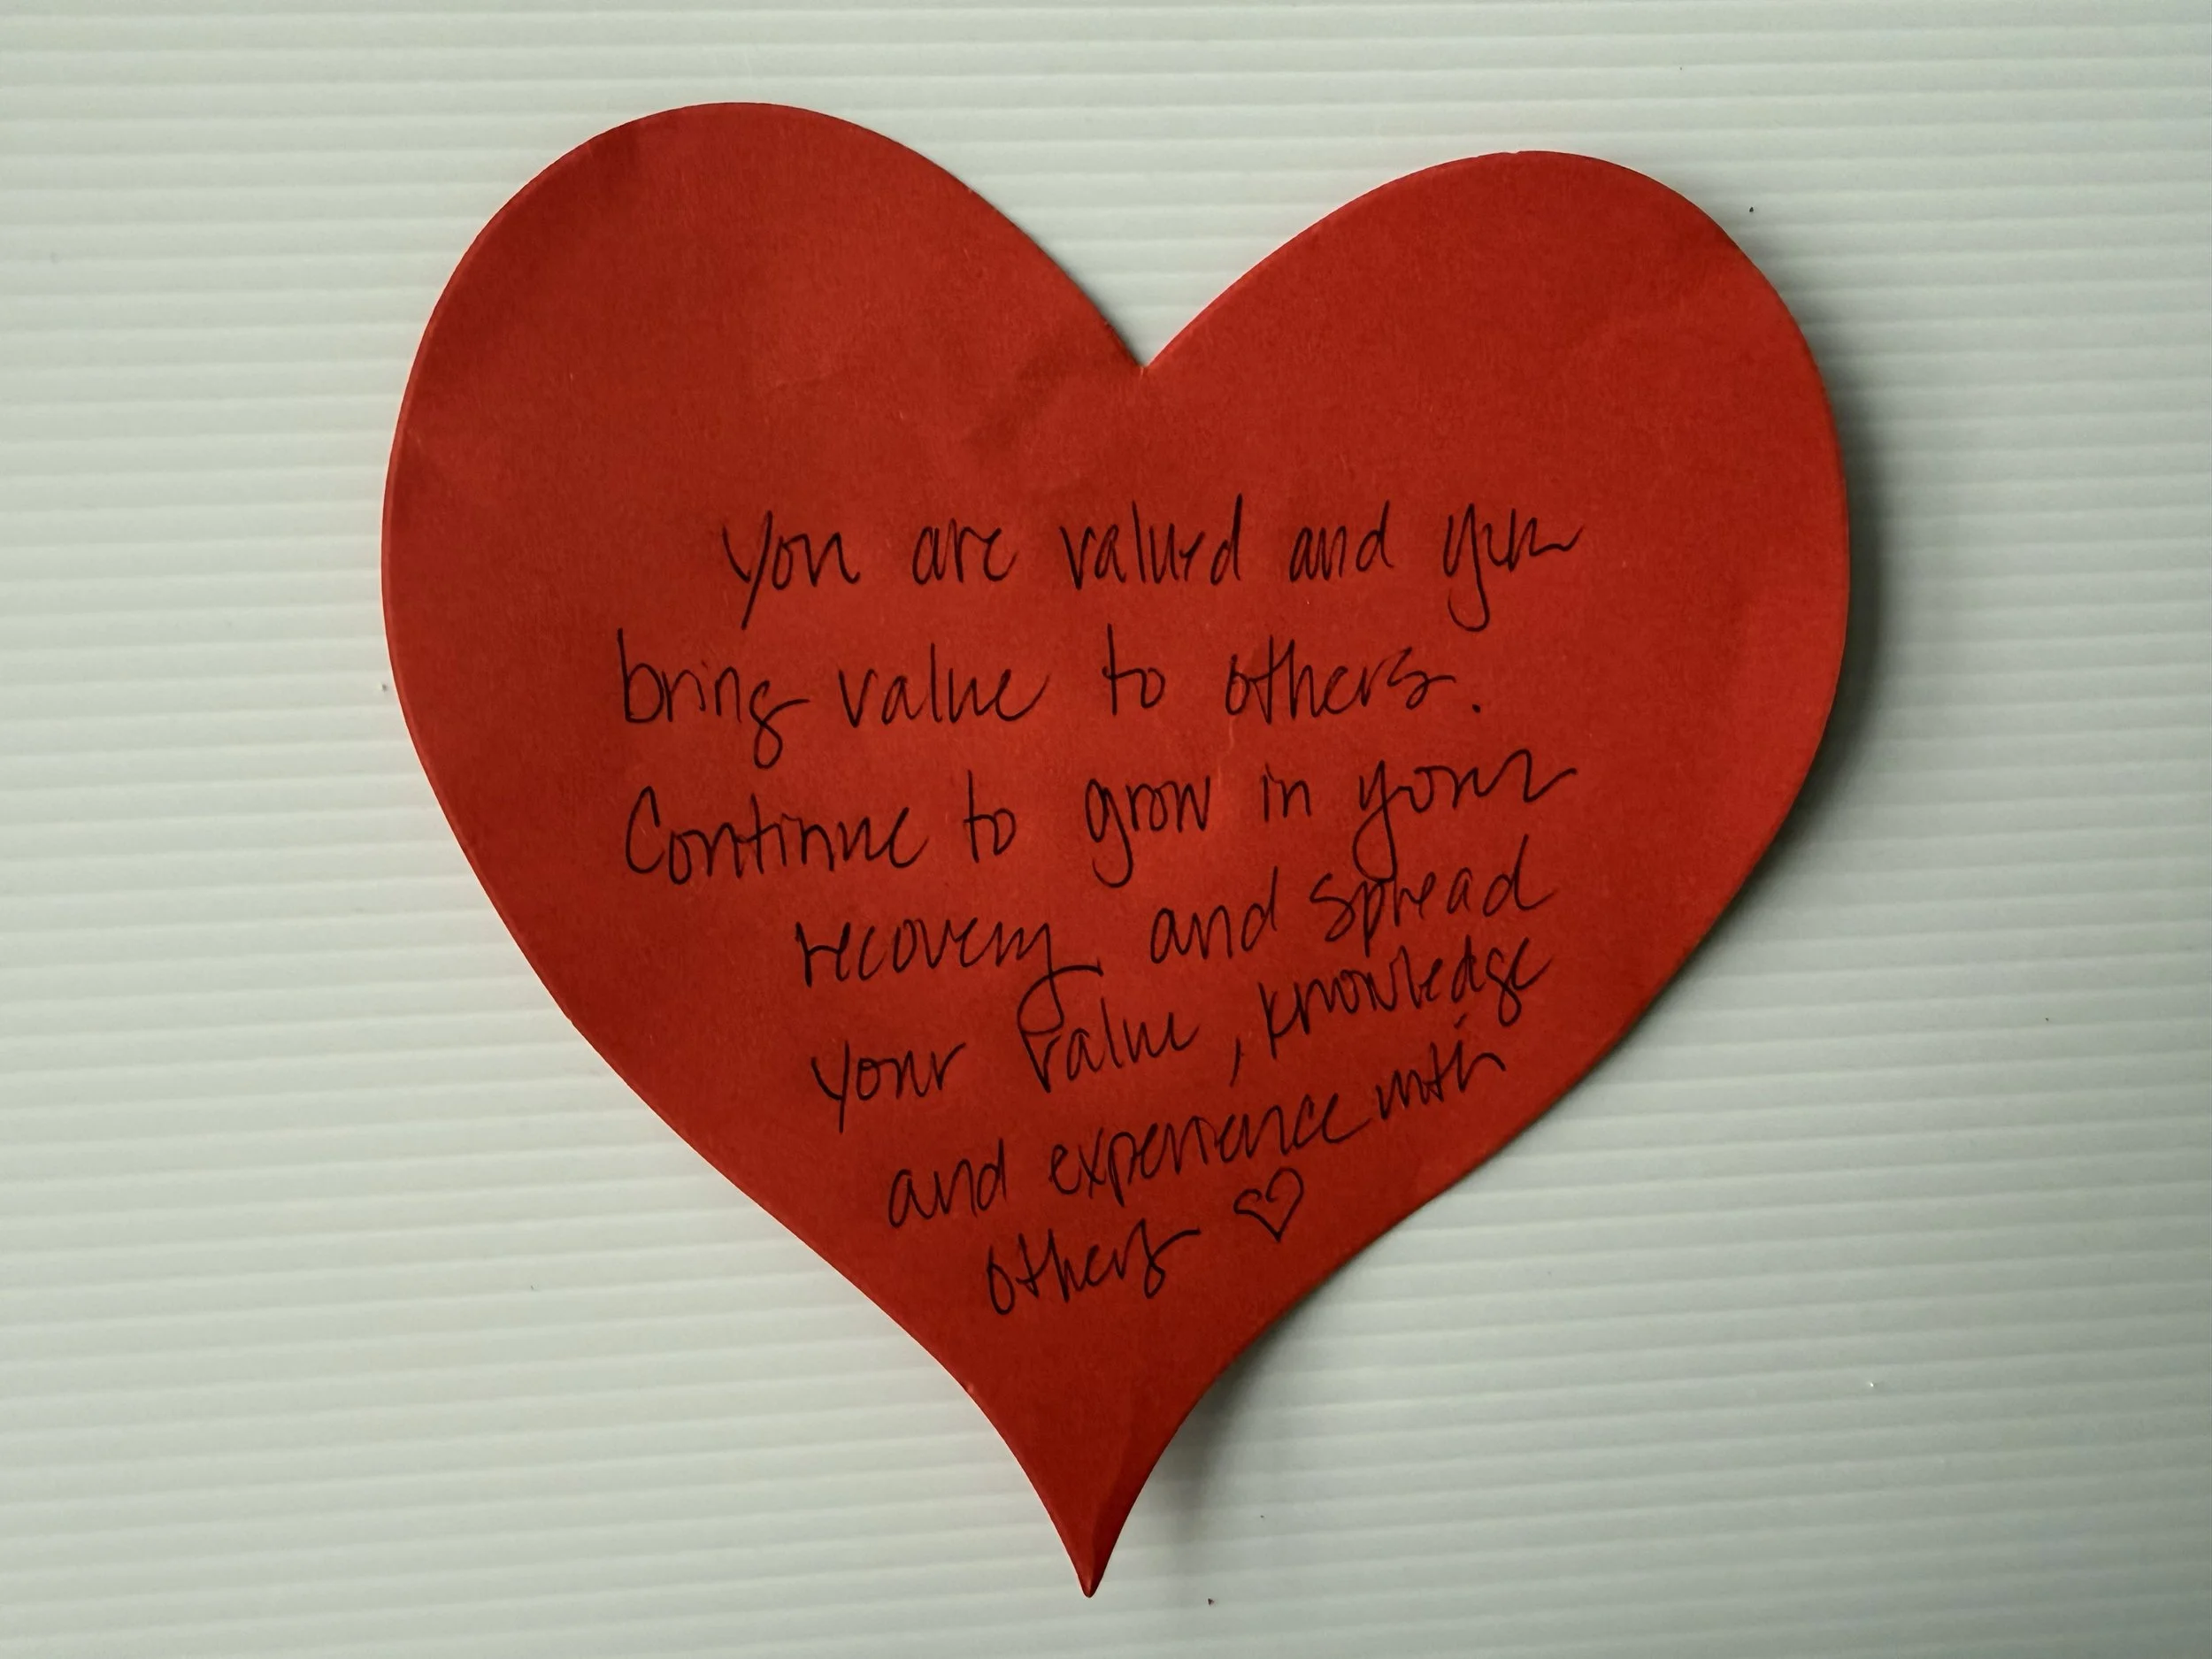 You are valued and you
bring value to others.
Continue to grow in your
recovery and spread
your value, knowledge
and experience with
others ♡